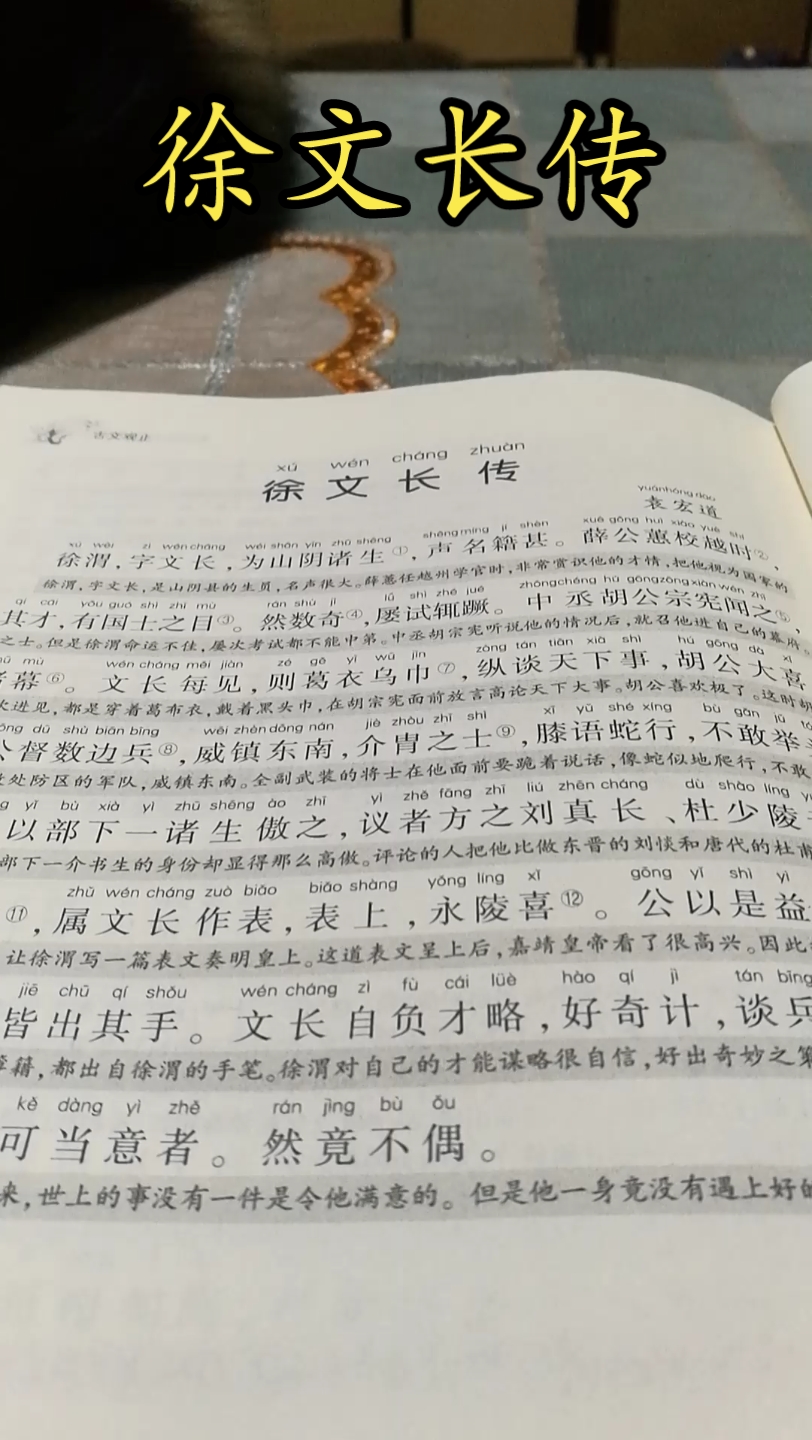 徐文长传
古文观止
xú wén cháng zhuàn
徐文长传
yuánhóng dào
袁宏道
xú wèi zì wén cháng wéi shān yīn zhū shēng shēng míng jí shèn xuē gōng huì xiào yuè shí
徐渭，字文长，为山阴诸生①，声名籍甚。薛公蕙校越时②，
徐渭，字文长，是山阴县的生员，名声很大。薛蕙任越州学官时，非常赏识他的才情，把他视为国家的
qí cái yǒu guó shì zhī mù rán shù jī lǚ shì zhé jué zhōng chéng hú gōng zōng xiàn wén zhī
其才，有国士之目③。然数奇④，屡试辄蹶。中丞胡公宗宪闻之⑤，
之士。但是徐渭命运不佳，屡次考试都不能中第。中丞胡宗宪听说他的情况后，就召他进自己的幕府。
mù wén cháng měi jiàn zé gé yī wū jīn zòng tán tiān xià shì hú gōng dà xǐ
幕⑥。文长每见，则葛衣乌巾⑦，纵谈天下事，胡公大喜
次进见，都是穿着葛布衣，戴着黑头巾，在胡宗宪面前放言高论天下大事。胡公喜欢极了。这时胡
gōng dū shù biān bīng wēi zhèn dōng nán jiè zhòu zhī shì xī yǔ shé xíng bù gǎn jǔ tóu
公督数边兵⑧，威镇东南，介胄之士⑨，膝语蛇行，不敢举
处防区的军队，威镇东南。全副武装的将士在他面前要跪着说话，像蛇似地爬行，不敢
yǐ bù xià yì zhū shēng ào zhī yì zhě fāng zhī liú zhēn cháng dù shào líng
以部下一诸生傲之，议者方之刘真长、杜少陵
部下一介书生的身份却显得那么高傲。评论的人把他比做东晋的刘惔和唐代的杜甫
zhǔ wén cháng zuò biǎo biǎo shàng yǒng líng xǐ gōng yǐ shì yì
⑪，属文长作表，表上，永陵喜⑫。公以是益
让徐渭写一篇表文奏明皇上。这道表文呈上后，嘉靖皇帝看了很高兴。因此
jiē chū qí shǒu wén cháng zì fù cái lüè hào qí jì tán bīng
皆出其手。文长自负才略，好奇计，谈兵
籍，都出自徐渭的手笔。徐渭对自己的才能谋略很自信，好出奇妙之策
kě dàng yì zhě rán jìng bù ǒu
可当意者。然竟不偶。
来，世上的事没有一件是令他满意的。但是他一身竟没有遇上好的